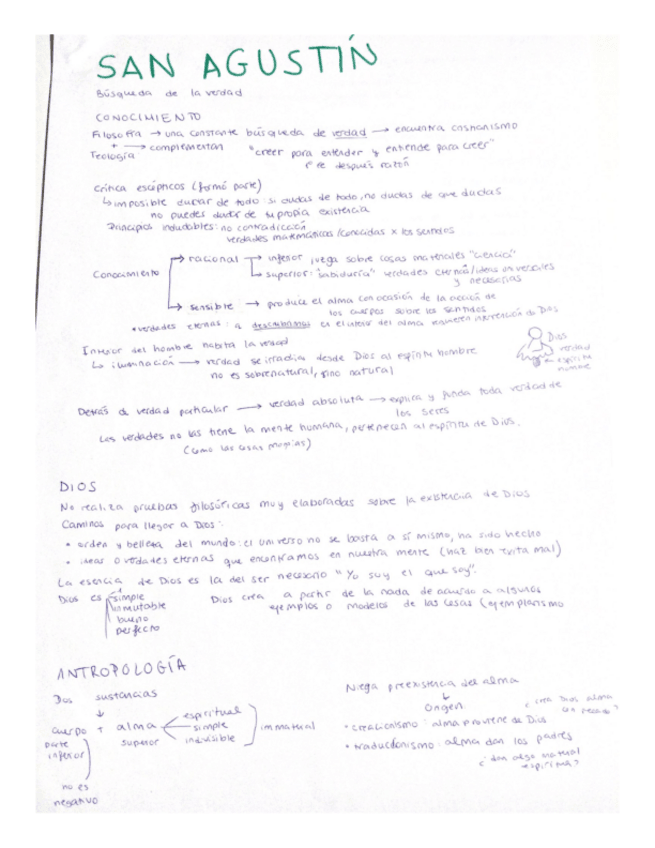 SAN AGUSTÍN
Búsqueda de la verdad
CONOCIMIENTO
Filosofía → una constante búsqueda de verdad → encuentra cristianismo
+ → complementan "creer para entender y entiende para creer"
Teología
fe después razón
Crítica escépticos (formó parte)
↳ imposible dudar de todo: si dudas de todo, no dudas de que dudas
no puedes dudar de tu propia existencia
Principios indudables: no contradicción
verdades matemáticas/conocidas x los sentidos
Conocimiento
racional → inferior juega sobre cosas materiales "ciencia"
↳ superior: "sabiduría" verdades /ideas universales
y necesarias
↳ sensible → produce el alma con ocasión de la acción de
los cuerpos sobre los sentidos
*verdades eternas: descubrimos en el interior del alma requieren intervención de Dios
Interior del hombre habita la verdad
↳ iluminación → verdad se irradia desde Dios al espíritu hombre
no es sobrenatural, sino natural
Dios
verdad
en espíritu
hombre
Detrás de verdad particular → verdad absoluta → explica y funda toda verdad de
los seres
Las verdades no las tiene la mente humana, pertenecen al espíritu de Dios.
(como las cosas mismas)
DIOS
No realiza pruebas filosóficas muy elaboradas sobre la existencia de Dios
Caminos para llegar a Dios:
• orden y belleza del mundo: el universo no se basta a sí mismo, ha sido hecho
• ideas o verdades eternas que encontramos en nuestra mente (haz bien evita mal)
La esencia de Dios es la del ser necesario "Yo soy el que soy".
Dios es simple
inmutable
bueno
perfecto
Dios crea a partir de la nada de acuerdo a algunos
ejemplos o modelos de las cosas (ejemplarismo
ANTROPOLOGÍA
Dos sustancias
↓
cuerpo + alma
parte
inferior
no es
negativo
superior
espiritual
simple
indivisible
inmaterial
Niega preexistencia del alma
↓
Origen
¿crea Dios alma
con pecado?
• creacionismo: alma proviene de Dios
• traducionismo: alma dan los padres
¿dan algo material
espiritual?